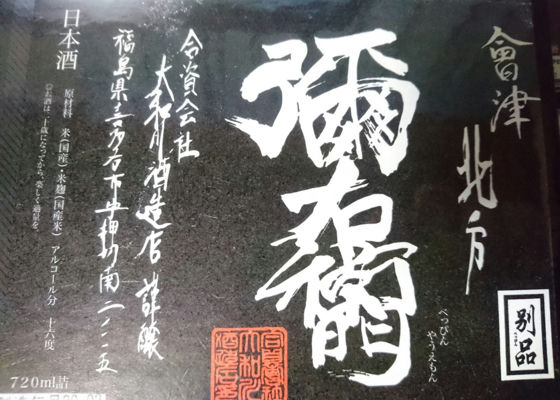 會津
北方
彌右衛門
べっぴん
やうえもん
別品
合資会社
大和川酒造店 謹醸
福島県喜多方市字押切南二ノ一五
日本酒
原材料 米(国産)・米麹(国産米) アルコール分 十六度
◎お酒は、二十歳になってから。楽しく適量を。
720ml詰